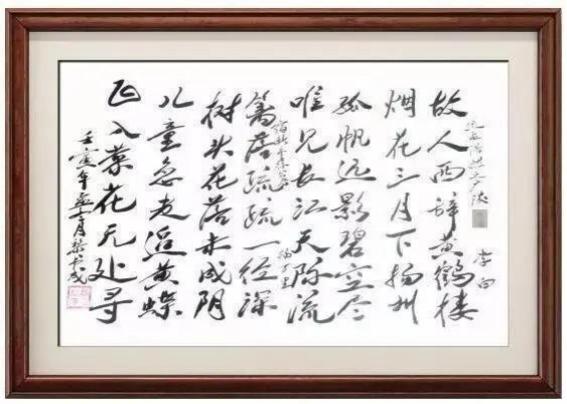 送孟浩然之广陵
李白
故人西辞黄鹤楼
烟花三月下扬州
孤帆远影碧空尽
唯见长江天际流
宿新市徐公店
杨万里
篱落疏疏一径深
树头花落未成阴
儿童急走追黄蝶
飞入菜花无处寻
壬寅年 月